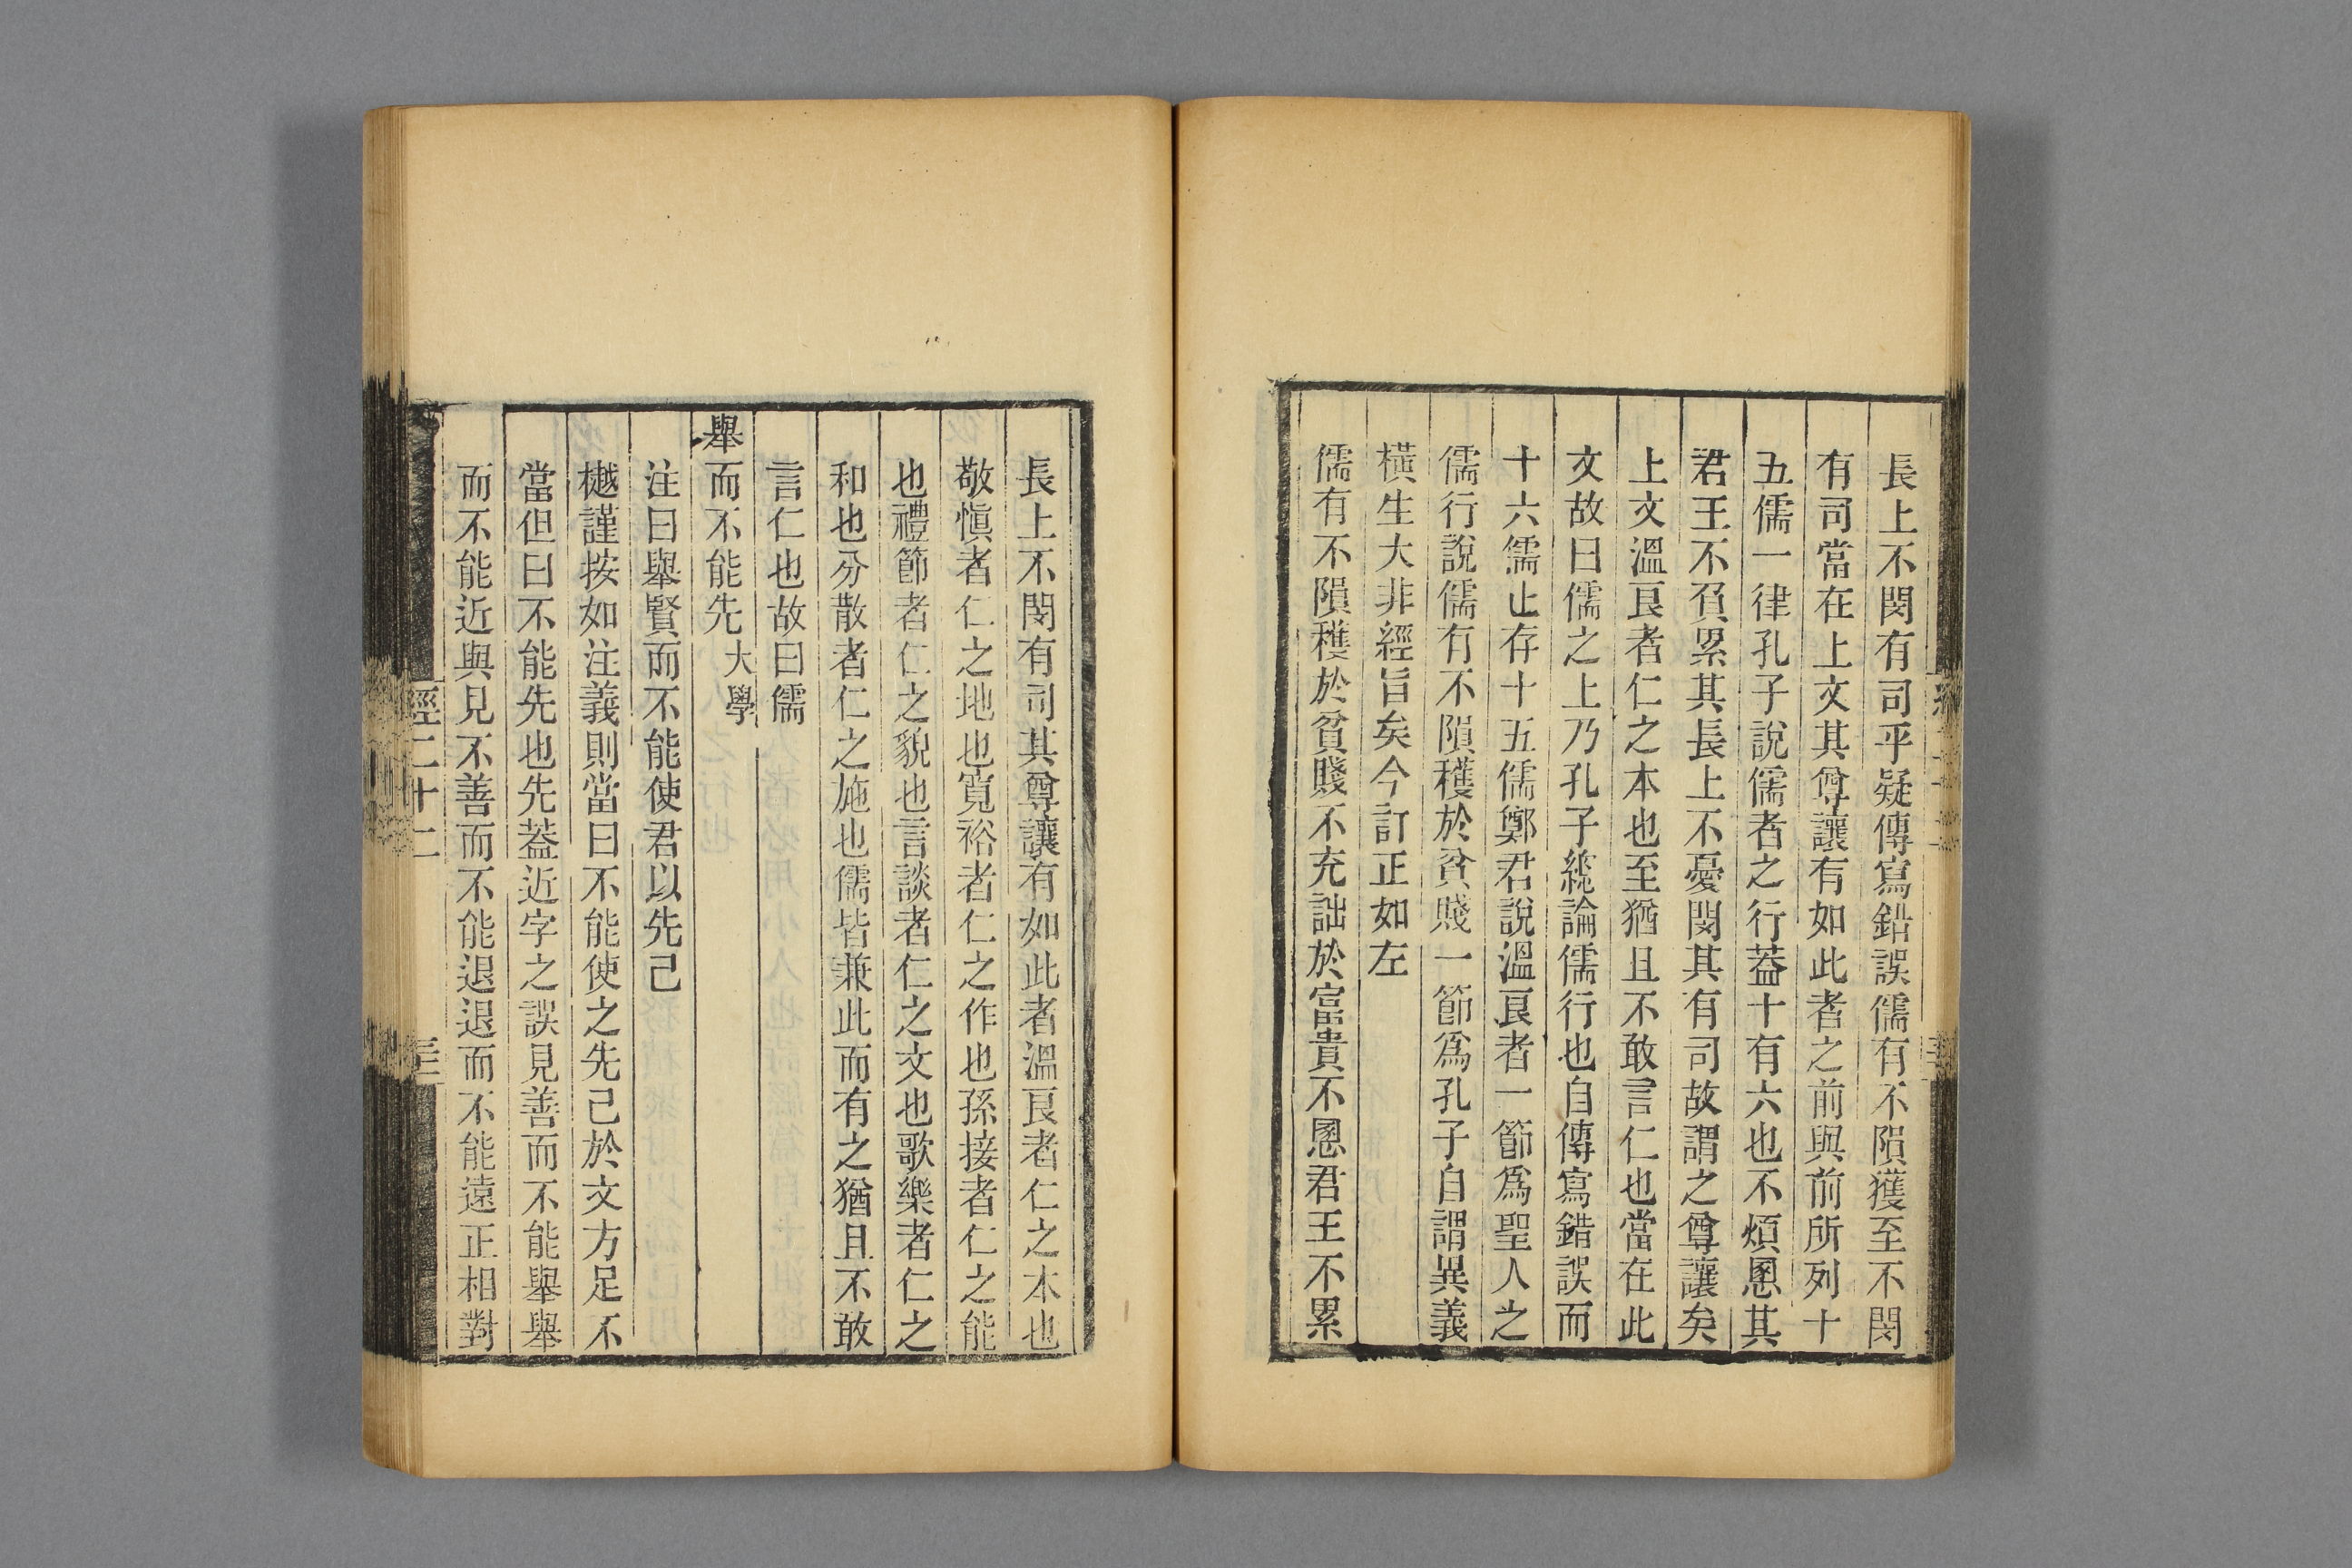 長上不閔有司乎疑傳寫錯誤儒有不隕獲至不閔
有司當在上文其尊讓有如此者之前與前所列十
五儒一律孔子說儒者之行葢十有六也不煩慁其
君王不負累其長上不憂閔其有司故謂之尊讓矣
上文溫良者仁之本也至猶且不敢言仁也當在此
文故曰儒之上乃孔子緫論儒行也自傳寫錯誤而
十六儒止存十五儒鄭君說溫良者一節爲聖人之
儒行說儒有不隕穫於貧賤一節爲孔子自謂異義
橫生大非經旨矣今訂正如左
儒有不隕穫於貧賤不充詘於富貴不慁君王不累
長上不閔有司其尊讓有如此者溫良者仁之本也
敬愼者仁之地也寬裕者仁之作也孫接者仁之能
也禮節者仁之貌也言談者仁之文也歌樂者仁之
和也分散者仁之施也儒皆兼此而有之猶且不敢
言仁也故曰儒
舉而不能先大學
注曰舉賢而不能使君以先己
樾謹按如注義則當曰不能使之先己於文方足不
當但曰不能先也先葢近字之誤見善而不能舉舉
而不能近與見不善而不能退退而不能遠正相對
經二十二